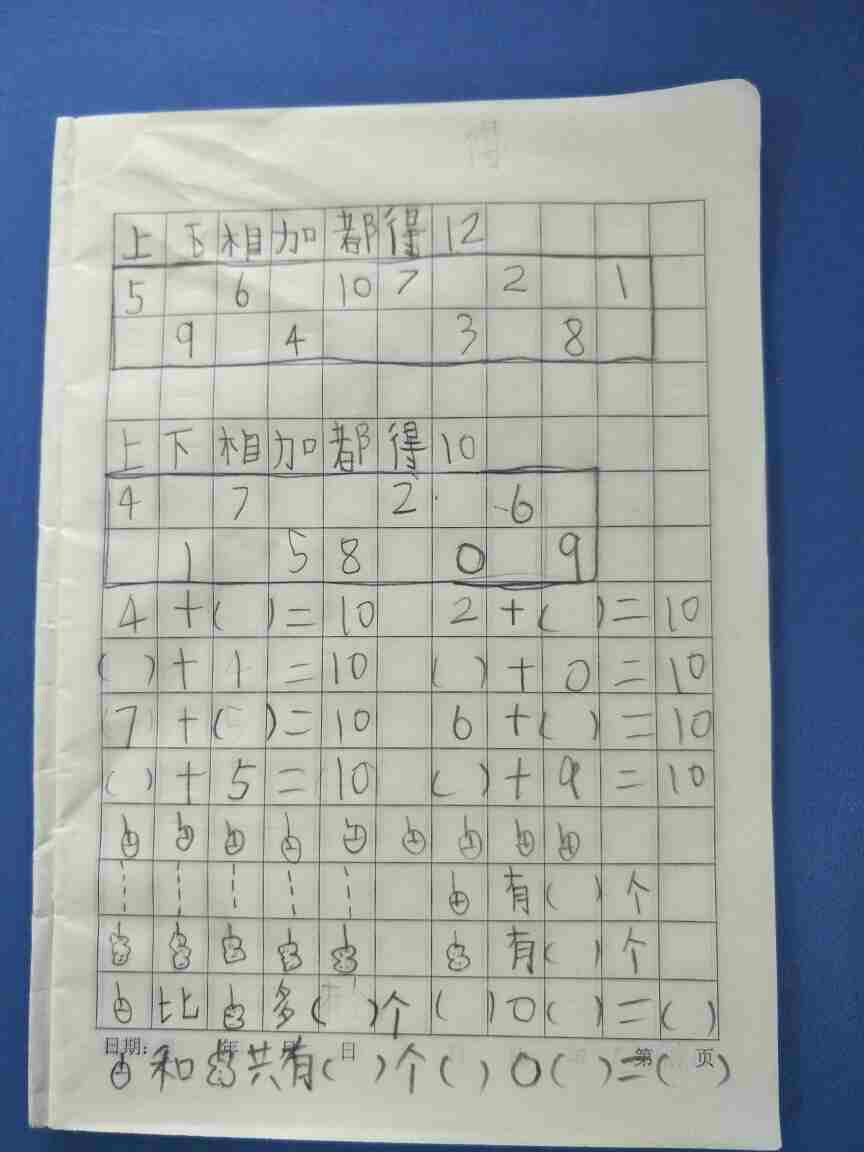 得
上下相加都得12
5 6 10 7 2 1
9 4 3 8
上下相加都得10
4 7 2 6
1 5 8 0 9
4+( )=10 2+( )=10
( )+1=10 ( )+0=10
7+( )=10 6+( )=10
( )+5=10 ( )+9=10
有( )个
有( )个
比 多( )个 ( )○( )=( )
日期: 年 月 日 第 页
和 共有( )个( )○( )=( )